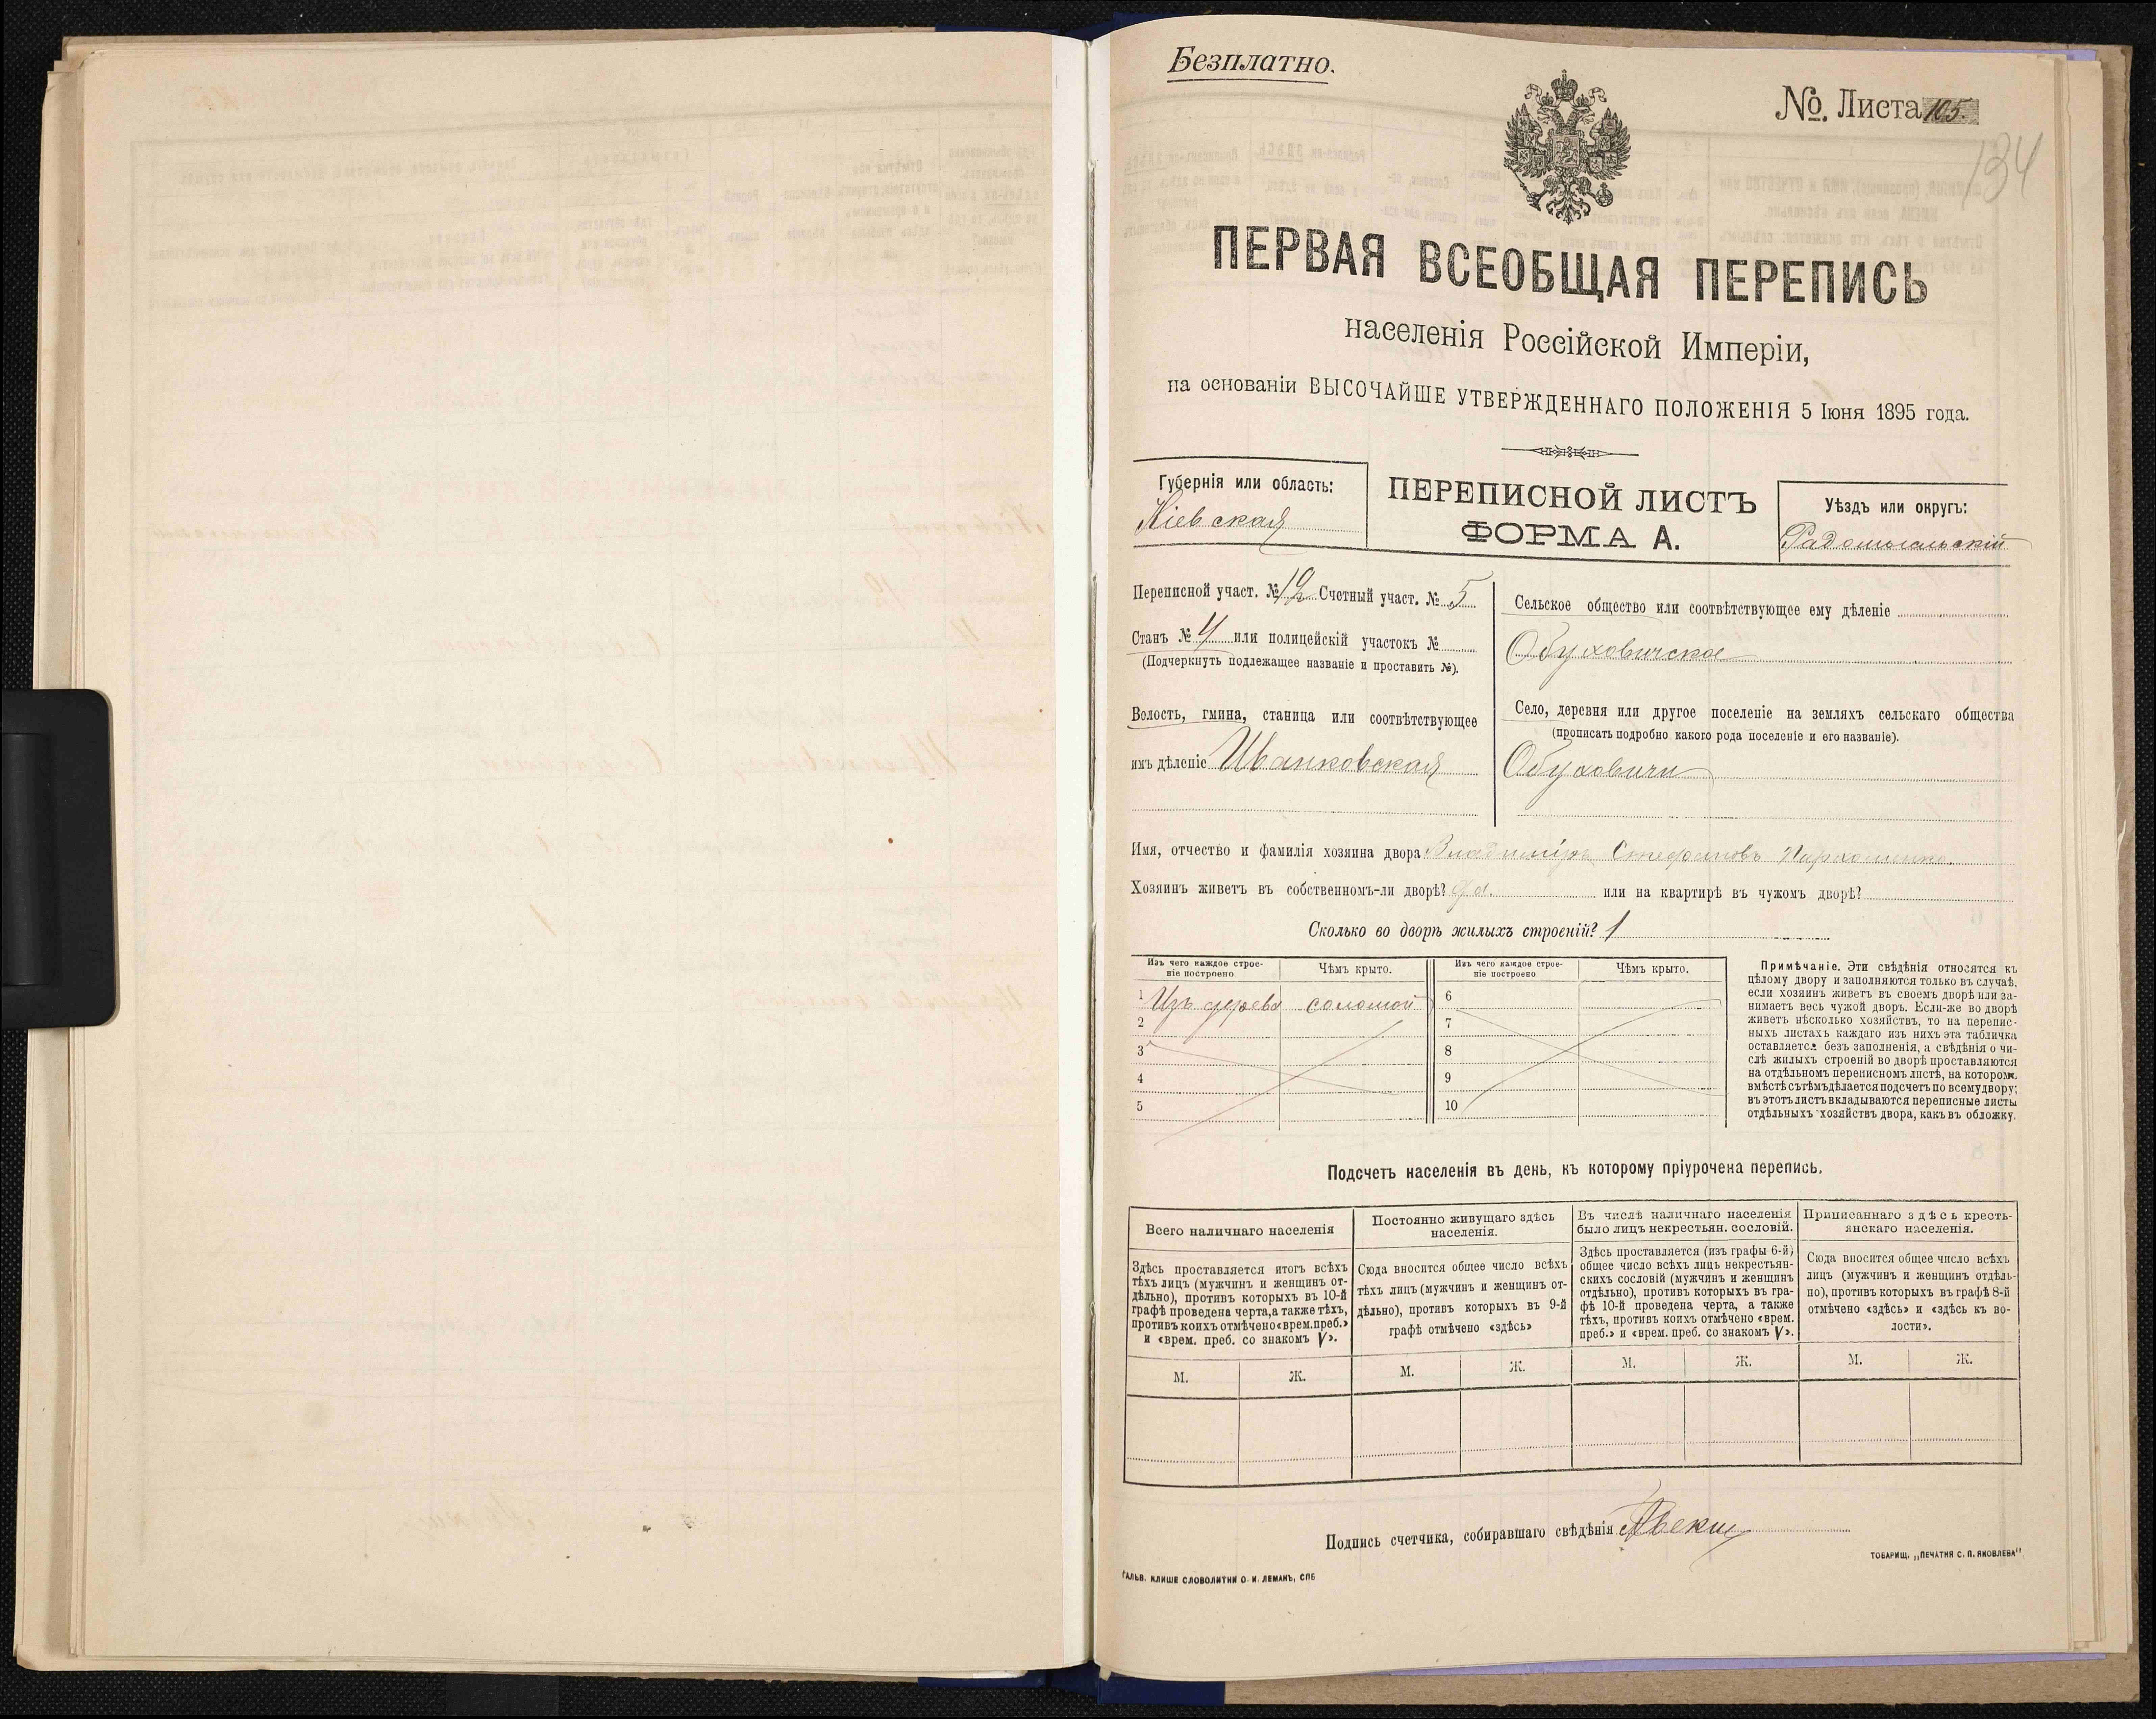 Безплатно.
№. Листа 105.
134
ПЕРВАЯ ВСЕОБЩАЯ ПЕРЕПИСЬ
населенія Россійской Имперіи,
на основаніи ВЫСОЧАЙШЕ УТВЕРЖДЕННАГО ПОЛОЖЕНІЯ 5 Іюня 1895 года.
Губернія или область:
Кіевская
ПЕРЕПИСНОЙ ЛИСТЪ
ФОРМА А.
Уѣздъ или округъ:
Радомысльскій
Переписной участ. № 12 Счетный участ. № 5
Станъ № 4 или полицейскій участокъ №
(Подчеркнуть подлежащее названіе и проставить №).
Волость, гмина, станица или соотвѣтствующее
имъ дѣленіе Иванковская
Сельское общество или соотвѣтствующее ему дѣленіе
Обуховичское
Село, деревня или другое поселеніе на земляхъ сельскаго общества
(прописать подробно какого рода поселеніе и его названіе).
Обуховичи
Имя, отчество и фамилія хозяина двора Владиміръ Стефановъ Пархоменко.
Хозяинъ живетъ въ собственномъ-ли дворѣ? Да. или на квартирѣ въ чужомъ дворѣ?
Сколько во дворѣ жилыхъ строеній? 1
Изъ чего каждое строе-
ніе построено
Чѣмъ крыто.
Изъ чего каждое строе-
ніе построено
Чѣмъ крыто.
1 Изъ дерева соломой
2
3
4
5
6
7
8
9
10
Примѣчаніе. Эти свѣдѣнія относятся къ
цѣлому двору и заполняются только въ случаѣ,
если хозяинъ живетъ въ своемъ дворѣ или за-
нимаетъ весь чужой дворъ. Если-же во дворѣ
живетъ нѣсколько хозяйствъ, то на перепис-
ныхъ листахъ каждаго изъ нихъ эта табличка
оставляется безъ заполненія, а свѣдѣнія о чи-
слѣ жилыхъ строеній во дворѣ проставляются
на отдѣльномъ переписномъ листѣ, на которомъ
вмѣстѣ съ тѣмъ дѣлается подсчетъ по всему двору;
въ этотъ листъ вкладываются переписные листы
отдѣльныхъ хозяйствъ двора, какъ въ обложку.
Подсчетъ населенія въ день, къ которому пріурочена перепись.
Всего наличнаго населенія
Здѣсь проставляется итогъ всѣхъ
тѣхъ лицъ (мужчинъ и женщинъ от-
дѣльно), противъ которыхъ въ 10-й
графѣ проведена черта, а также тѣхъ,
противъ коихъ отмѣчено «врем. преб.»
и «врем. преб. со знакомъ V».
Постоянно живущаго здѣсь
населенія.
Сюда вносится общее число всѣхъ
тѣхъ лицъ (мужчинъ и женщинъ от-
дѣльно), противъ которыхъ въ 9-й
графѣ отмѣчено «здѣсь»
Въ числѣ наличнаго населенія
было лицъ некрестьян. сословій.
Здѣсь проставляется (изъ графы 6-й)
общее число всѣхъ лицъ некрестьян-
скихъ сословій (мужчинъ и женщинъ
отдѣльно), противъ которыхъ въ гра-
фѣ 10-й проведена черта, а также
тѣхъ, противъ коихъ отмѣчено «врем.
преб.» и «врем. преб. со знакомъ V».
Приписаннаго здѣсь кресть-
янскаго населенія.
Сюда вносится общее число всѣхъ
лицъ (мужчинъ и женщинъ отдѣль-
но), противъ которыхъ въ графѣ 8-й
отмѣчено «здѣсь» и «здѣсь къ во-
лости».
М. Ж. М. Ж. М. Ж. М. Ж.
Подпись счетчика, собиравшаго свѣдѣнія
ТОВАРИЩ. „ПЕЧАТНЯ С. П. ЯКОВЛЕВА“
ГАЛЬВ. КЛИШЕ СЛОВОЛИТНИ О. И. ЛЕМАНЪ, СПБ